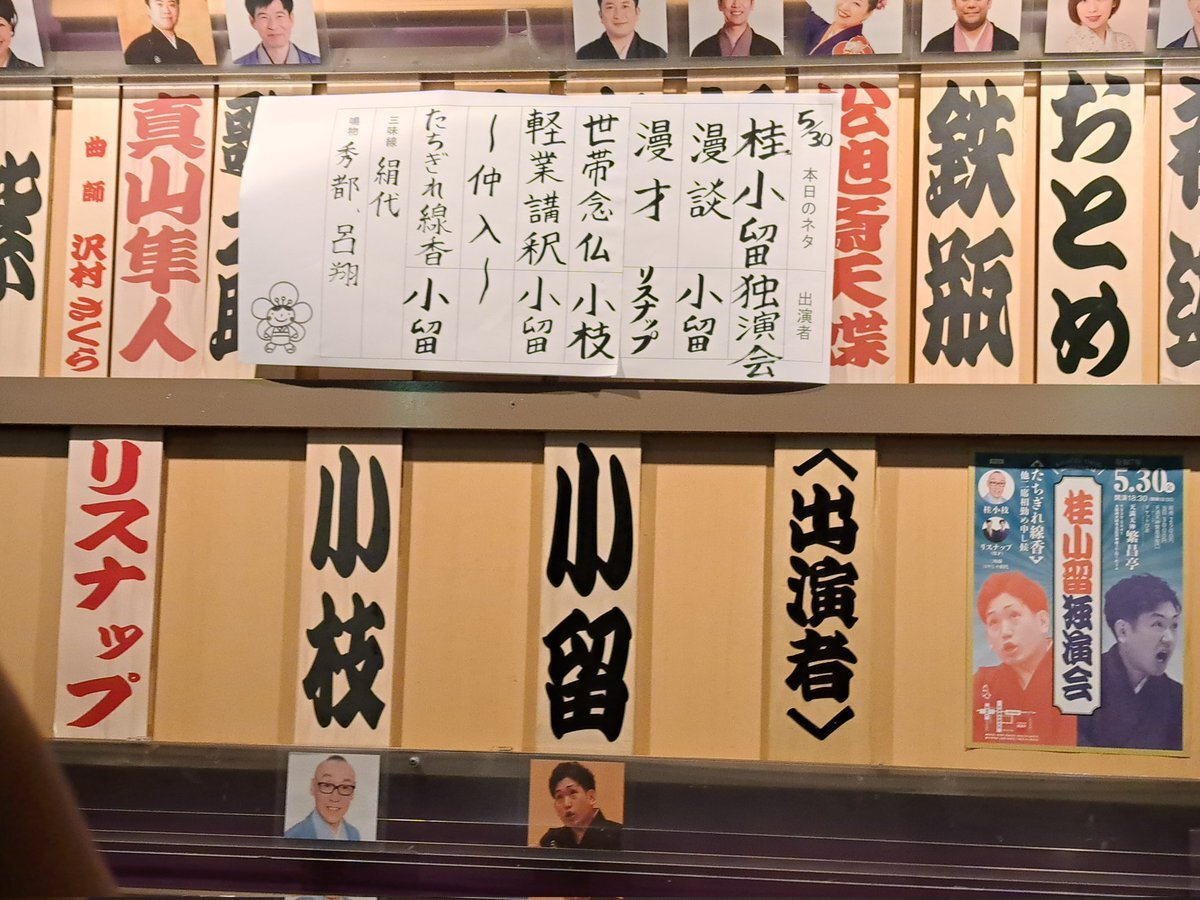 5/30
本日のネタ 出演者
桂小留独演会
漫談 小留
漫才 リスナップ
世帯念仏 小枝
軽業講釈 小留
〜仲入〜
たちぎれ線香 小留
三味線 絹代
鳴物 秀都、呂翔
おとめ
鉄瓶
真山隼人
曲師 沢村さくら
紫
〈出演者〉
小留
小枝
リスナップ
5.30
開演18:30
天満天神 繁昌亭
桂小留独演会
〈たちぎれ線香〉
他二席相勤め申し候
桂小枝
リスナップ